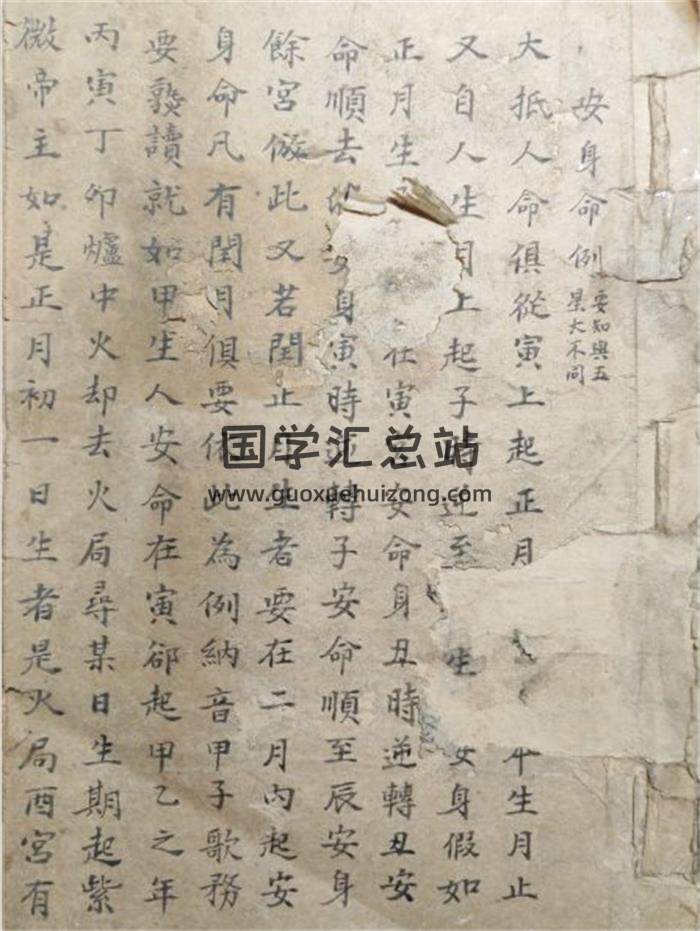 安身命例 要知與五
星大不同
大抵人命俱從寅上起正月 生月止
又自人生月上起子時逆至 生 安身假如
正月生 在寅 安命身丑時逆轉丑安
命順去 安身寅時逆轉子安命順至辰安身
餘宮倣此又若閏正月生者要在二月內起安
身命凡有閏月俱要依此為例納音甲子歌務
要熟讀就如甲生人安命在寅卻起甲乙之年
丙寅丁卯爐中火却去火局尋某日生期起紫
微帝主如是正月初一日生者是火局酉宮有
国学汇总站
www.guoxuehuizong.com